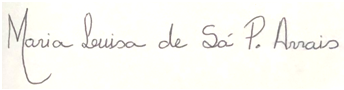 Maria Luisa de Sá P. Arrais